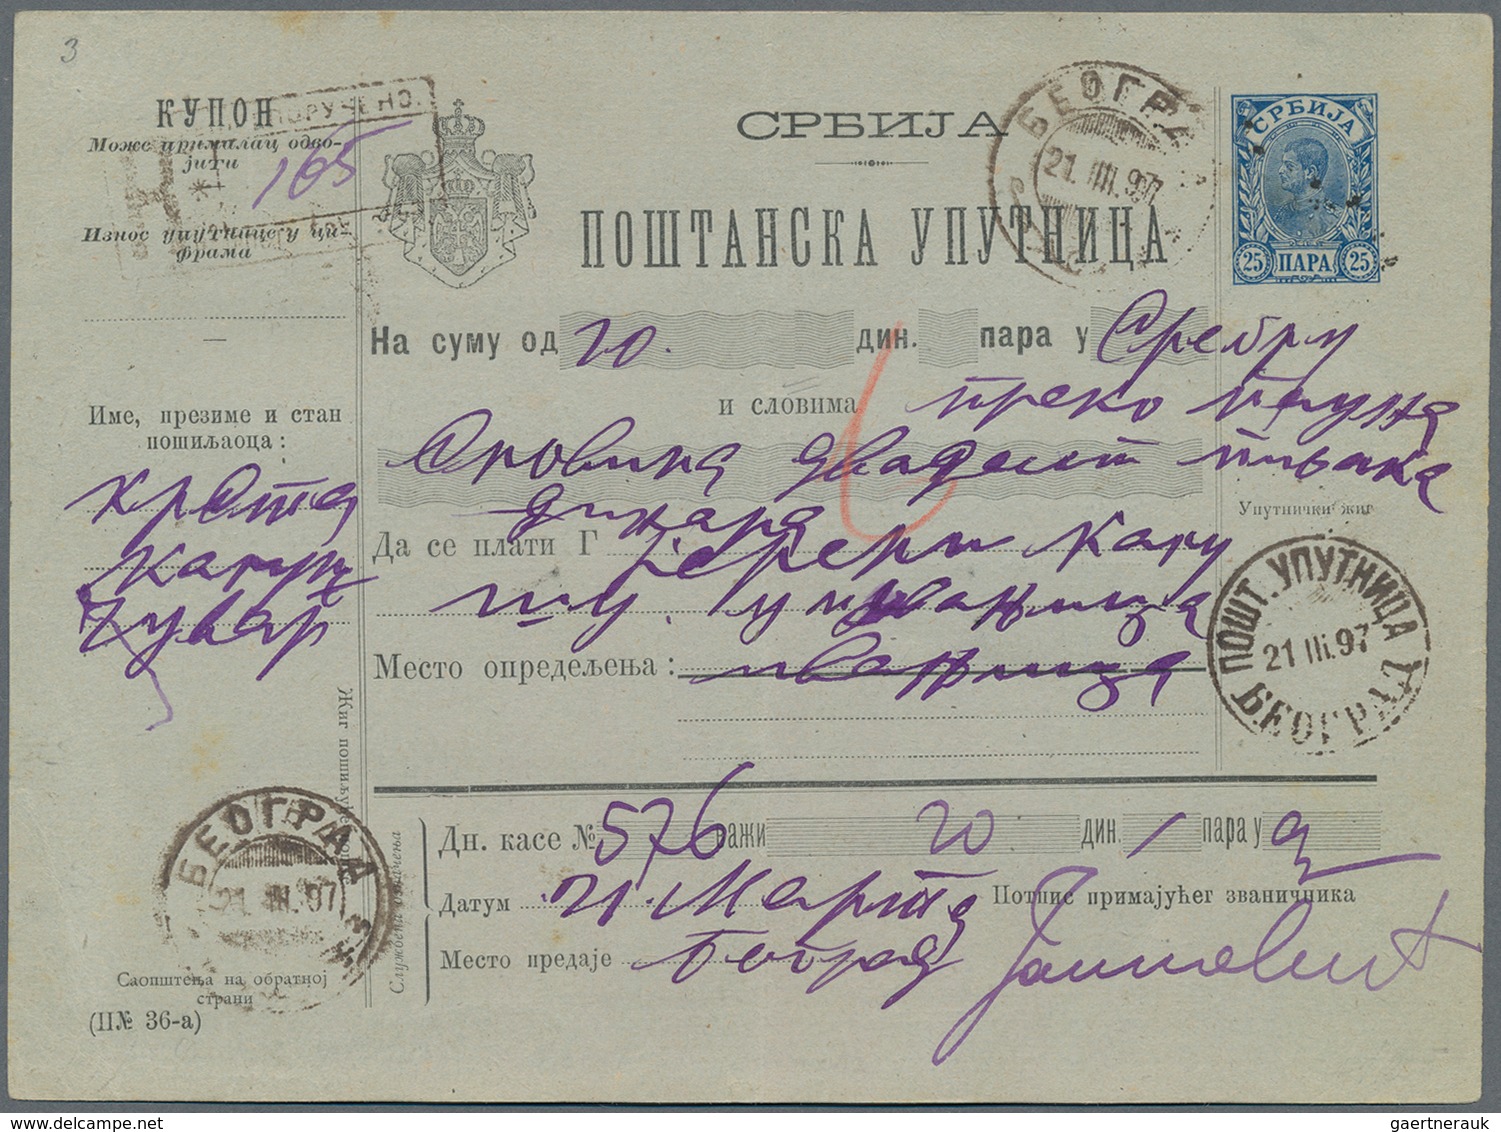 3
КУПОН
Може прималац одво-
јити
ПОРУЧЕНО.
165
Износ упутнице у ци-
фрама
СРБИЈА
ПОШТАНСКА УПУТНИЦА
БЕОГРАД
21. III. 97
СРБИЈА
25 ПАРА 25
На суму од 20. дин. пара у Сребру
и словима преко
Словима двадесет
динара
Име, презиме и стан
пошиљаоца:
Крста
чувар
Упутнички жиг
Да се плати Г
Место опредељења: Иваница
ПОШТ. УПУТНИЦА
21 III. 97
БЕОГРАД
Жиг пошиљуће поште
Службена означења
Дн. касе № 576 важи 20 дин. / пара у
Датум 21. Марта Потпис примајућег званичника
Место предаје Београд
БЕОГРАД
21. III. 97
Саопштења на обратној
страни
(П№ 36-а)
gaertnerauk